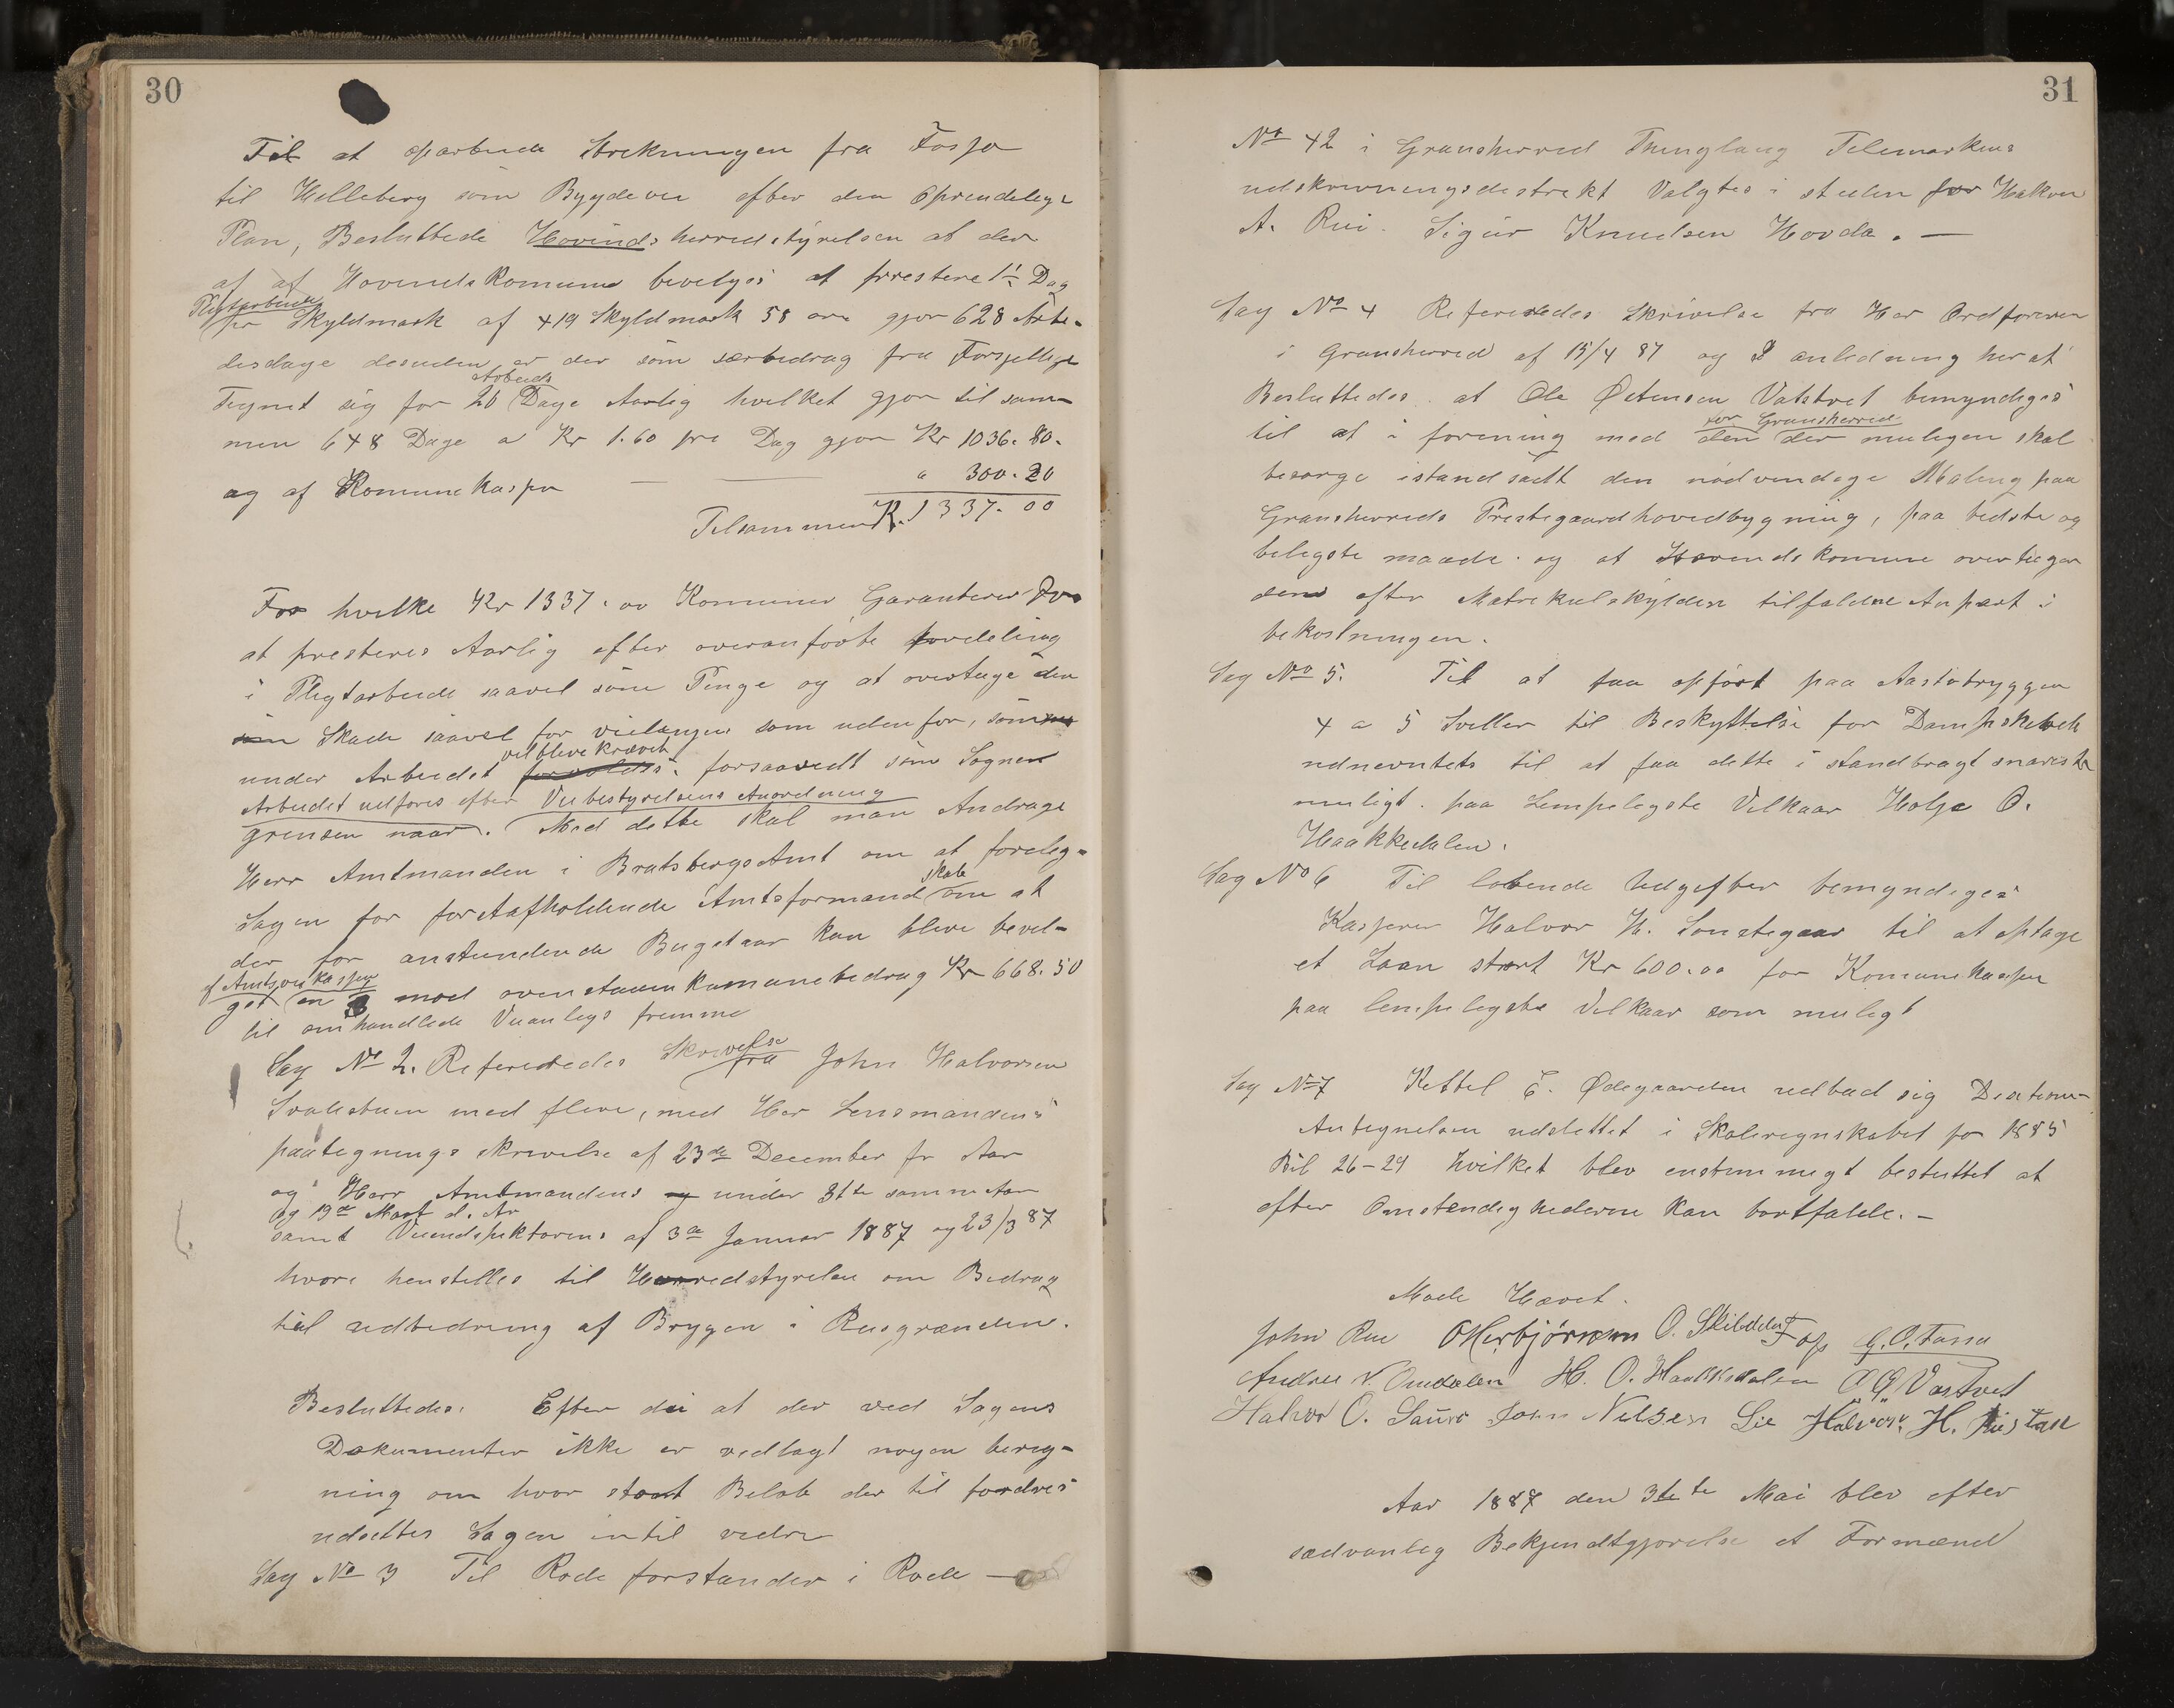 30
Til at oparbeide Strekningen fra Fosso
til Helleberg som Bygdevei efter den Oprindelige
Plan, Besluttede Hovinds herredstyrelsen at der
af Hovinds Komune bevilges at prestere 1½ Dag
Pligtarbeide
pr Skyldmark af 419 Skyldmark 58 øre gjør 628 Arbei-
desdage desuden er der som særbedrag fra
Arbeids
Tegnet sig for 20 Dage Aarlig hvilket gjør til sam-
men 648 Dage a Kr 1.60 pr Dag gjør Kr 1036.80.
og af Komunekassen — — " 300.20
Tilsammen Kr. 1337.00
For hvilke Kr 1337.00 Komunen Garanterer for
at presteres Aarlig efter ovenanførte fordeling
i Pligtarbeide saavel som Penge og at overtage den
Skade saavel for veilængen som udenfor, som
vil blive krævet
under Arbeidet forvoldes. forsaavidt som Sognen
Arbeidet udføres efter Veibestyrelsens Anordning
grensen naar. Med dette skal man Andrage
Herr Amtmanden i Bratsbergs Amt om at foreleg-
skab
Sagen for førstafholdende Amtsformand om at
der for anstundende Bugetaar kan blive bevil-
af Amtsveikassen
get en mod ovenstaaen kumunebedrag Kr 668.50
til omhandlede Veianlegs fremme
Sag No 2. Refereredes Skrivelse fra John Halvorsen
Svalestuen med flere, med Her Lensmandens
paategnings skrivelse af 23de December fr Aar
og Herr Amtmandens under 31te samme Aar
og 19de Mart d. Ar
samt Veiindspektørens af 3de Januar 1887 og 23/3 87
hvori henstilles til Herredstyrelsen om Bedrag
til udbedring af Bryggen i Rusgrænden.
Besluttedes. Efter di at der ved Sagens
Dokumenter ikke er vedlagt nogen bereg-
ning om hvor stort Beløb der til fordres
udsettes Sagen intil videre
Sag No 3 Til Rode forstander i Rode —
31
No 42 i Gransherred Thinglaug Telemarkens
udskrivningsdestrekt Valgtes i steden for Halvor
A. Rui. Sigur Knudsen Hovde. —
Sag No 4 Refereredes Skrivelse fra Her Ordføreren
i Gransherred af 15/4 87 og I anledning heraf
Besluttedes at Ole Østensen Vatstvet bemyndiges
for Gransherred
til at i forening med den der muligen skal
besørge istandsadt den nødvendige Maling paa
Gransherreds Prestegaardhovedbygning, paa bedste og
beligste maade. og at Hovinds komune overtager
den efter Matrekulskylden tilfaldne Anpart i
bekostningen.
Sag No 5. Til at faa opført paa Aastobryggen
4 a 5 Sviller til Beskyttelse for Dampskibet
udnevntes til at faa dette i standbragt snariste
muligt. paa Lempeligste Vilkaar Holje O.
Haakkedalen.
Sag No 6 Til løbende Udgifter bemyndiges
Kasseren Halvor H. Sonstegaar til at optage
et Laan stort Kr 600.00 for Komunekassen
paa lempeligste Vilkaar som muligt
Sag No 7 Kittel E. Ødegaarden udbad sig
Antegnelsen udslettet i Skoleregnskabet for 1885
Bil 26-29 hvilket blev enstemmigt besluttet at
efter Omstendighederne kan bortfalde. —
Møde Hævet.
John Rue O Herbjørnsen O. Skibddal G. O. Fossu
Andres N. Omdalen H. O. Haakkedalen O. Ø. Vastvet
Halvor O. Sauro John Nilsen Lie Halvor H.
Aar 1887 den 3te Mai blev efter
sædvanlig Bekjendtgjørelse et Formænd